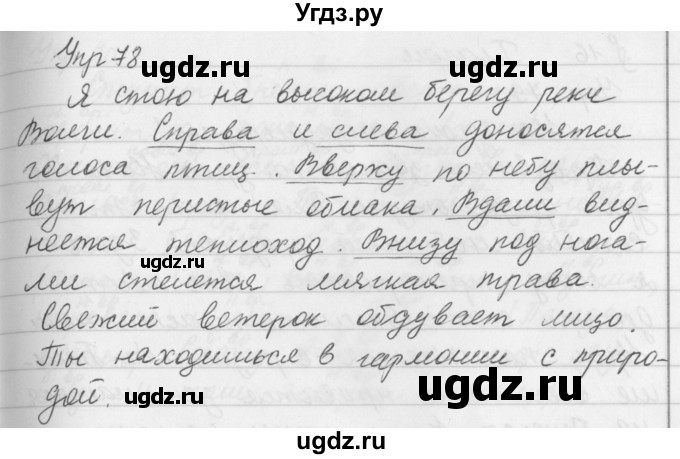 Угдз.ру
Упр 78
Я стою на высоком берегу реки
Волги. Справа и слева доносятся
голоса птиц. Вверху по небу плы-
вут перистые облака. Вдали вид-
неется теплоход. Внизу под нога-
ми стелется мягкая трава.
Свежий ветерок обдувает лицо.
Ты находишься в гармонии с приро-
дой.
ugdz.ru
ugdz.ru
ugdz.ru
ugdz.ru
ugdz.ru
ugdz.ru
ugdz.ru